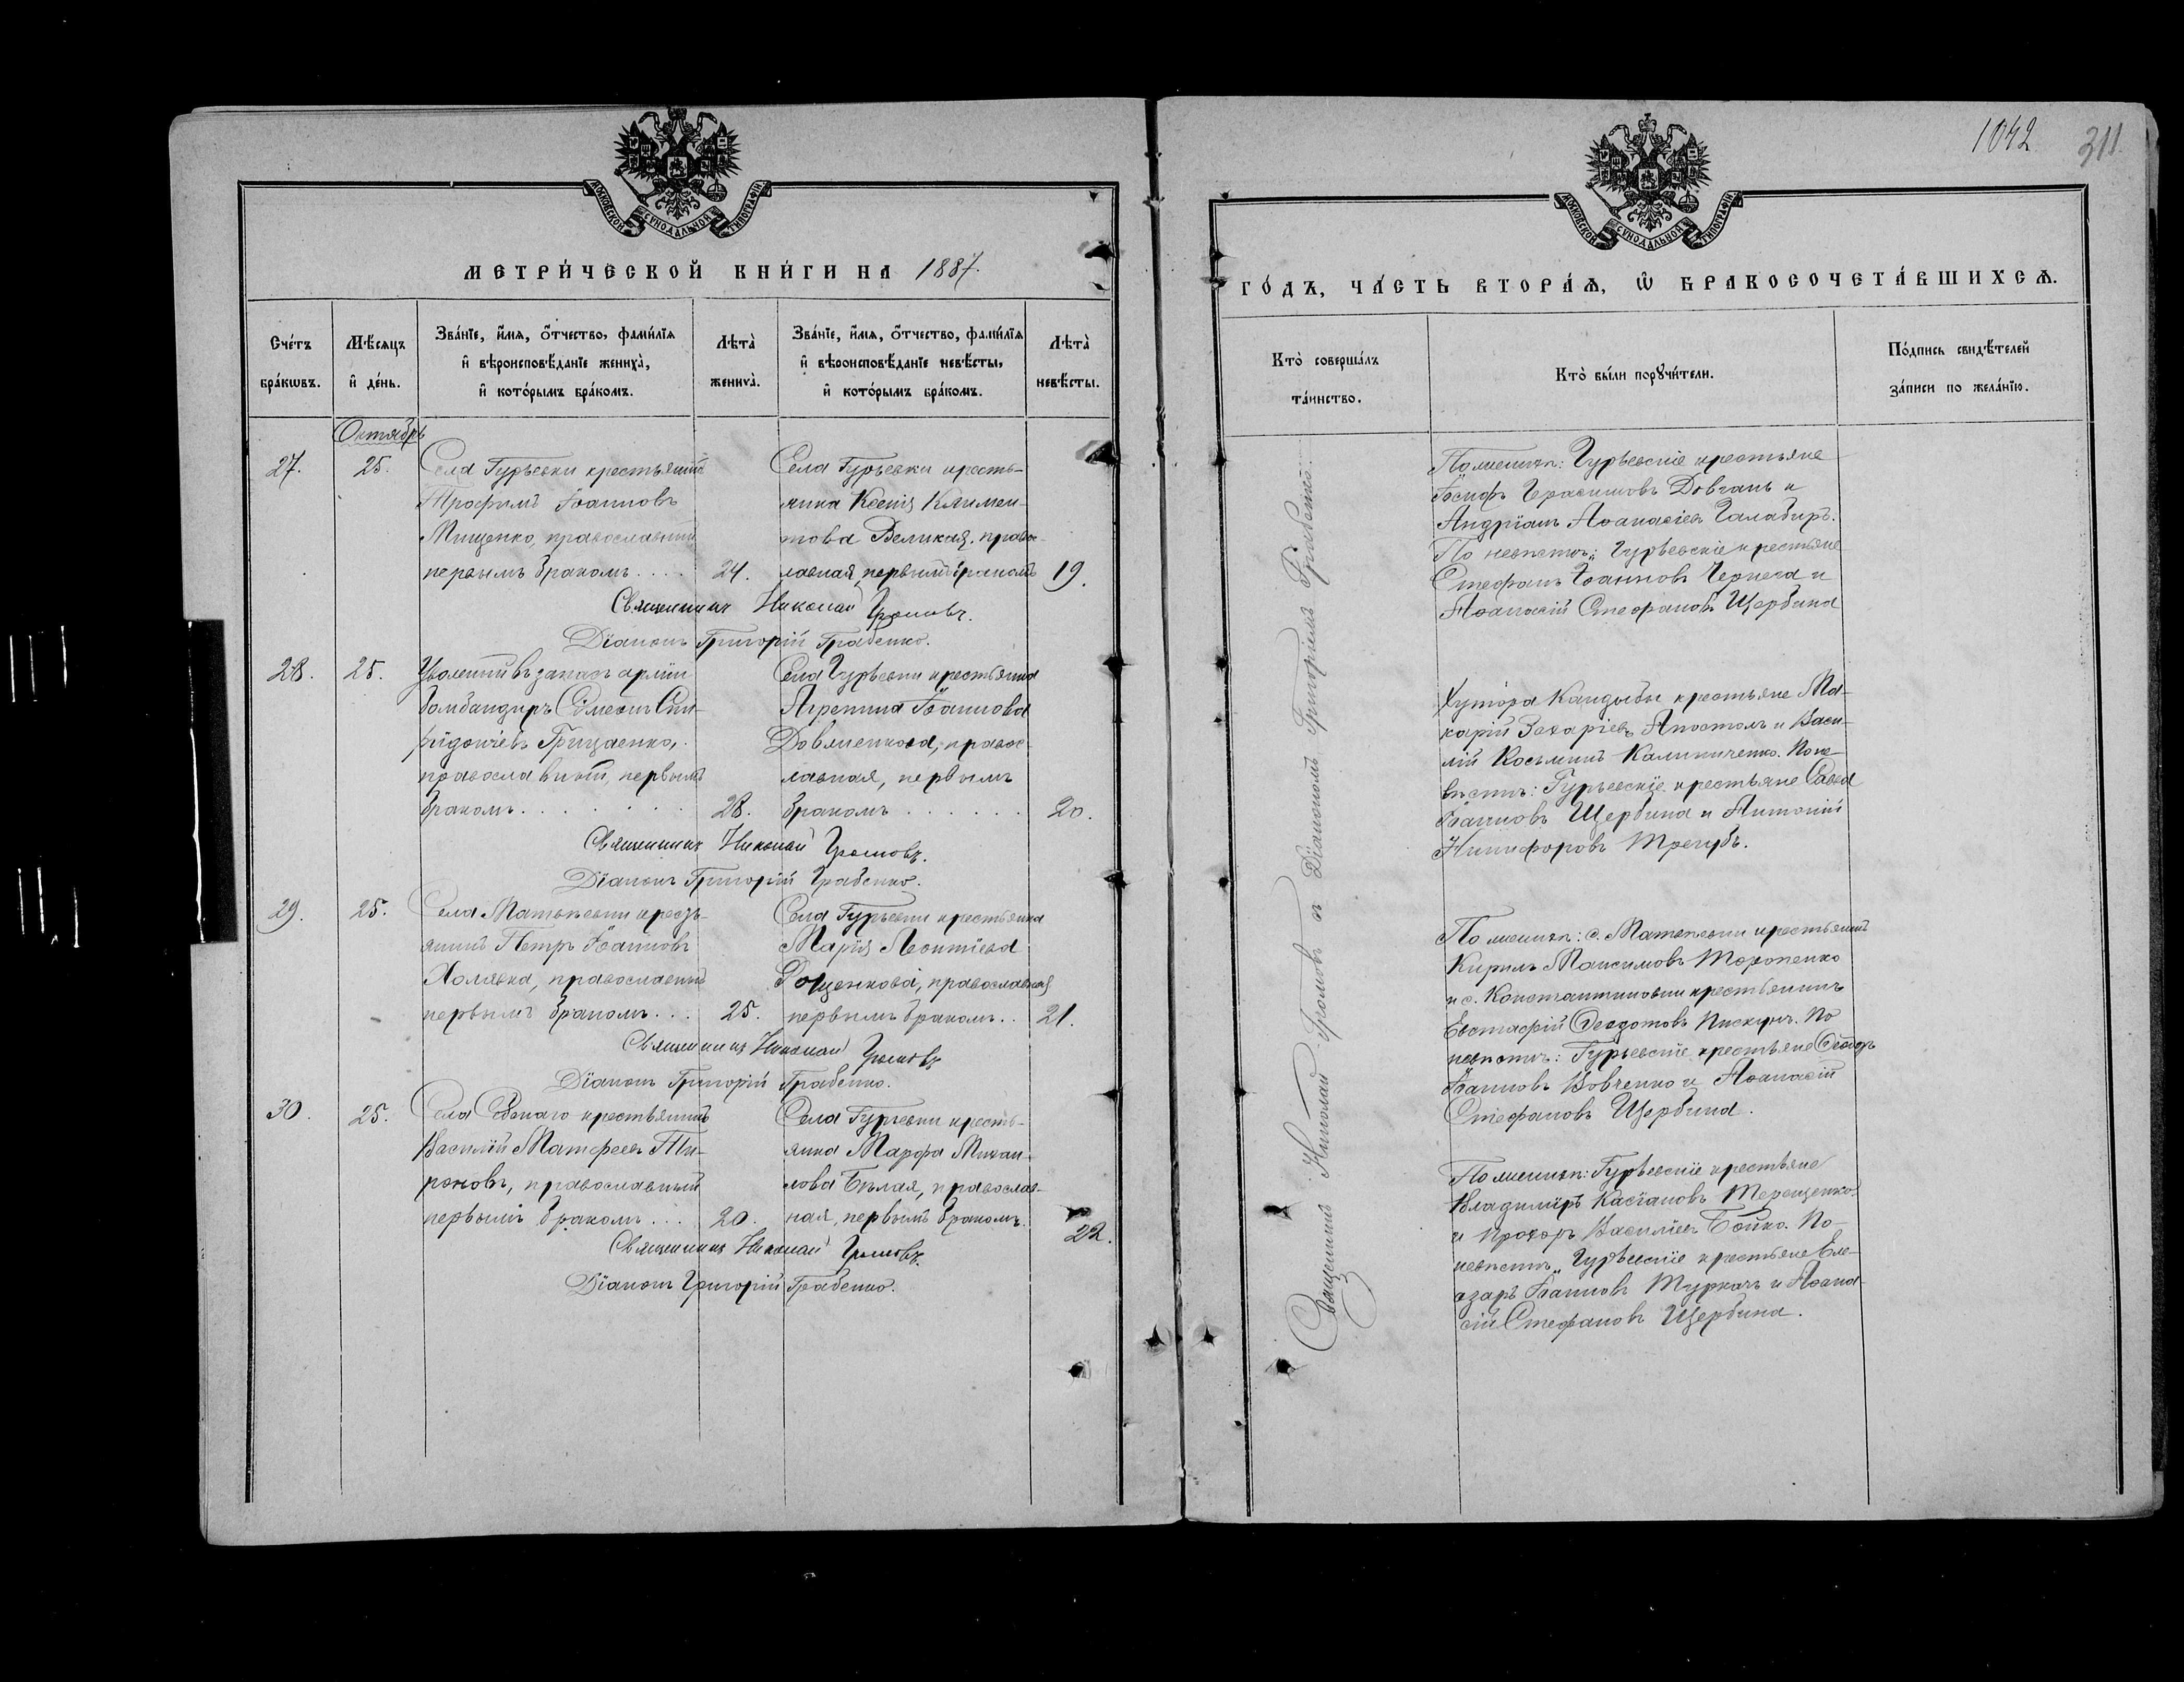 МОСКОВСКОЙ СѴНОДАЛЬНОЙ ТИПОГРАФІИ
МЕТРИ́ЧЕСКОЙ КНИ́ГИ НА 1887.
Сче́тъ бра́кѡвъ.
Мѣ́сяцъ и҆ де́нь.
Зва́нїе, и҆́мя, ѻ҆́тчество, фами́лїя и҆ вѣроисповѣ́данїе жениха̀, и҆ кото́рымъ бра́комъ.
Лѣта̀ жениха̀.
Зва́нїе, и҆́мя, ѻ҆́тчество, фами́лїя и҆ вѣроисповѣ́данїе невѣ́сты, и҆ кото́рымъ бра́комъ.
Лѣта̀ невѣ́сты.
Октябрь
27. 25.
Села Гурьевки крестьянинъ
Трофимъ Іоанновъ
Мищенко, православный
первымъ бракомъ . . . . 24.
Села Гурьевки кресть-
янка Ксенія Климен-
това Великая, правос-
лавная, первымъ бракомъ 19.
Священникъ Николай Громовъ.
Діаконъ Григорій Грабенко.
28. 25.
Уволенный въ запасъ арміи
бомбандиръ Симеонъ Спи-
ридоніевъ Грищаенко,
православный, первымъ
бракомъ . . . . . . 28.
Села Гурьевки крестьянка
Агрепина Іоаннова
Довженкова, правос-
лавная, первымъ
бракомъ . . . . . . 20.
Священникъ Николай Громовъ.
Діаконъ Григорій Грабенко.
29. 25.
Села Матвѣевки кресть-
янинъ Петръ Іоанновъ
Холявка, православный
первымъ бракомъ . . . 25.
Села Гурьевки крестьянка
Марія Леонтіева
Рощенкова, православная
первымъ бракомъ . . 21.
Священникъ Николай Громовъ
Діаконъ Григорій Грабенко.
30. 25.
Села Себенаго крестьянинъ
Василій Матфеевъ Пи-
роговъ, православный
первымъ бракомъ . . . 20.
Села Гурьевки кресть-
янка Марфа Михаи-
лова Бѣлая, православ-
ная, первымъ бракомъ. 22.
Священникъ Николай Громовъ.
Діаконъ Григорій Грабенко.
1042 311.
МОСКОВСКОЙ СѴНОДАЛЬНОЙ ТИПОГРАФІИ
ГО́ДЪ, ЧА́СТЬ ВТОРА́Ѧ, Ѡ҆ БРАКОСОЧЕТА́ВШИХСѦ.
Кто̀ соверша́лъ та́инство.
Кто̀ бы́ли порꙋчи́тели.
По́дпись свидѣ́телей за́писи по жела́нїю.
Священникъ Николай Громовъ съ Діакономъ Григоріемъ Грабенко.
По женихѣ: Гурьевскіе крестьяне
Іосифъ Герасимовъ Довгань и
Андріанъ Аѳанасіевъ Галабиръ.
По невѣстѣ: Гурьевскіе крестьяне
Стефанъ Іоанновъ Чернега и
Аѳанасій Стефановъ Щербина
Хутора Кандыбы крестьяне Ма-
карій Захаріевъ Апостолъ и Васи-
лій Косьминъ Калиниченко. По не-
вѣстѣ: Гурьевскіе крестьяне Савва
Іоанновъ Щербина и Антоній
Никифоровъ Трегубъ.
По женихѣ: с. Матвѣевки крестьянинъ
Кирилъ Максимовъ Торопенко
и с. Константиновки крестьянинъ
Евстафій Ѳеодотовъ Пискунъ. По
невѣстѣ: Гурьевскіе крестьяне Ѳеодоръ
Іоанновъ Вовченко и Аѳанасій
Стефановъ Щербина.
По женихѣ: Гурьевскіе крестьяне
Владиміръ Касіановъ Терещенко
и Прохоръ Василіевъ Бойко. По
невѣстѣ: Гурьевскіе крестьяне Еле-
озаръ Іоанновъ Туркачъ и Аѳана-
сій Стефановъ Щербина.